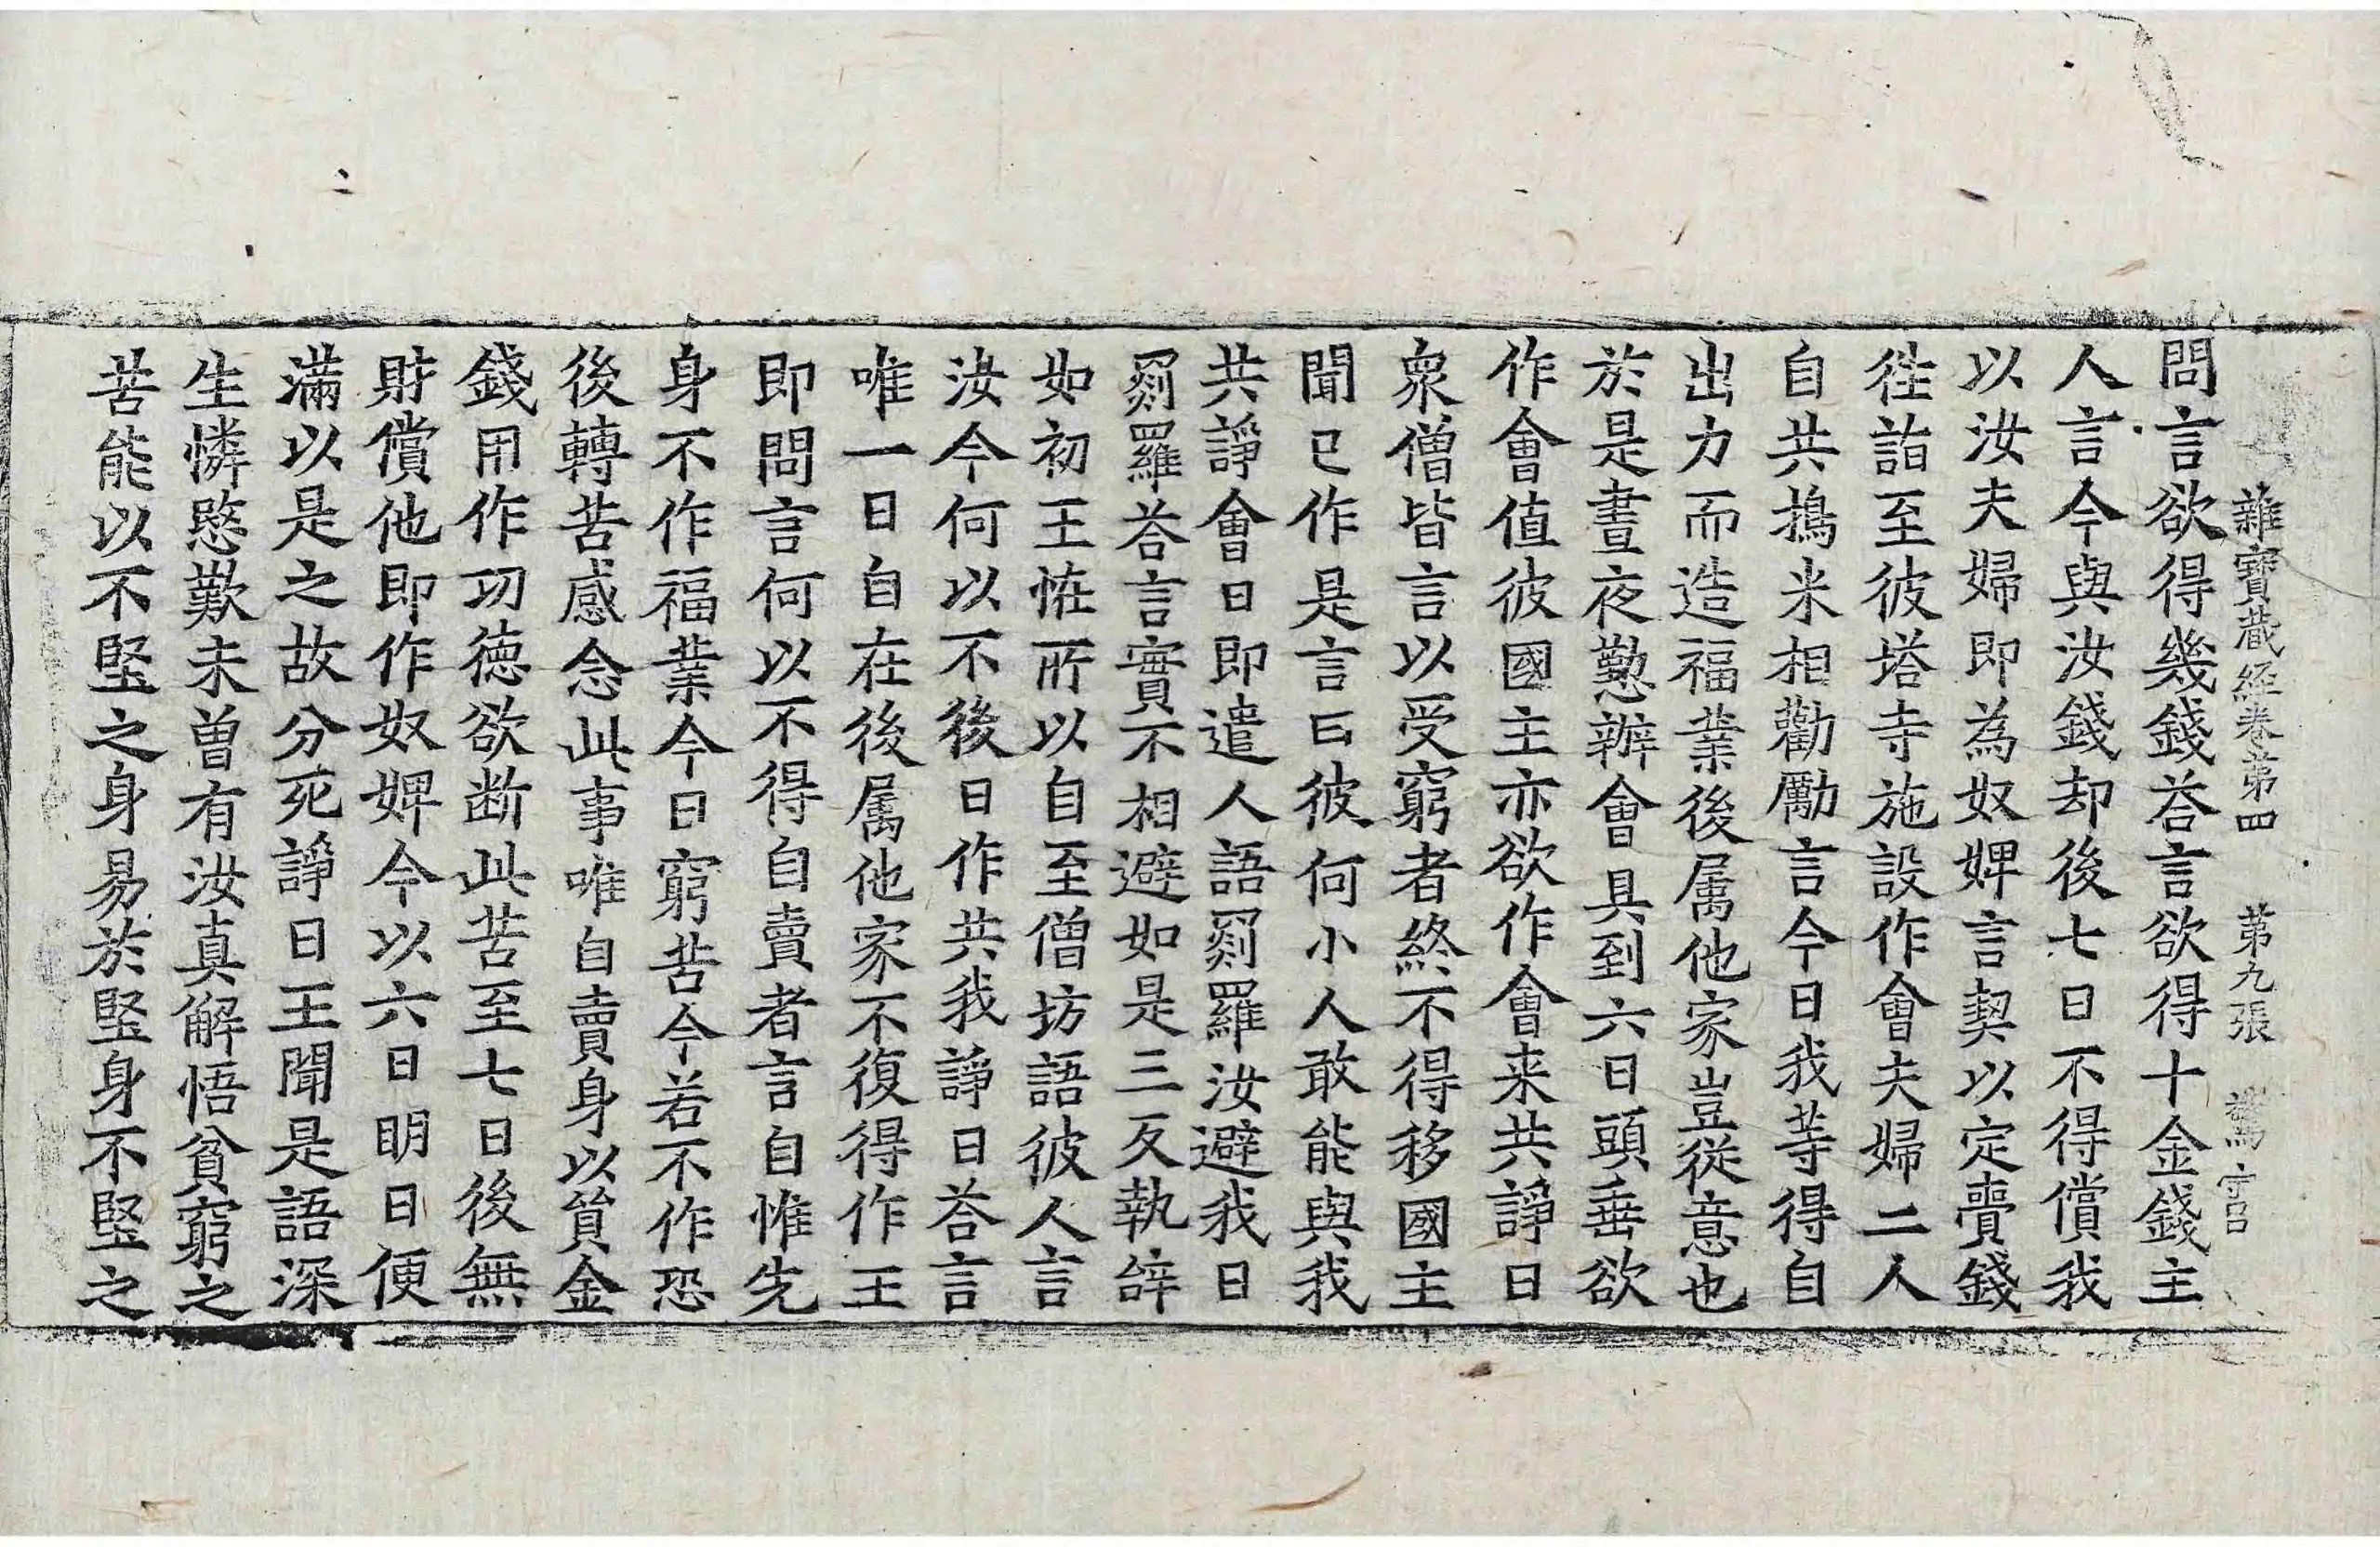 雜寶蔵經卷苐四　苐九張　驚　守吕
問言欲得幾錢荅言欲得十金錢主
人言今與汝錢却後七日不得償我
以汝夫婦即為奴婢言契以定賷錢
徃詣至彼塔寺施設作會夫婦二人
自共擣米相勸勵言今日我䓁得自
出力而造福業後属他家豈從意也
於是晝夜懃辦會具到六日頭垂欲
作會值彼國主亦欲作會来共諍日
衆僧皆言以受窮者終不得移國主
聞已作是言曰彼何小人敢能與我
共諍會日即遣人語罽羅汝避我日
罽羅荅言實不相避如是三反執辝
如初王恠所以自至僧坊語彼人言
汝今何以不後日作共我諍日荅言
唯一日自在後属他家不復得作王
即問言何以不得自賣者言自惟先
身不作福業今日窮苦今若不作恐
後轉苦感念此事唯自賣身以貿金
錢用作功徳欲断此苦至七日後無
財償他即作奴婢今以六日明日便
滿以是之故分死諍日王聞是語深
生憐愍歎未曽有汝真解悟貧窮之
苦能以不堅之身易於堅身不堅之